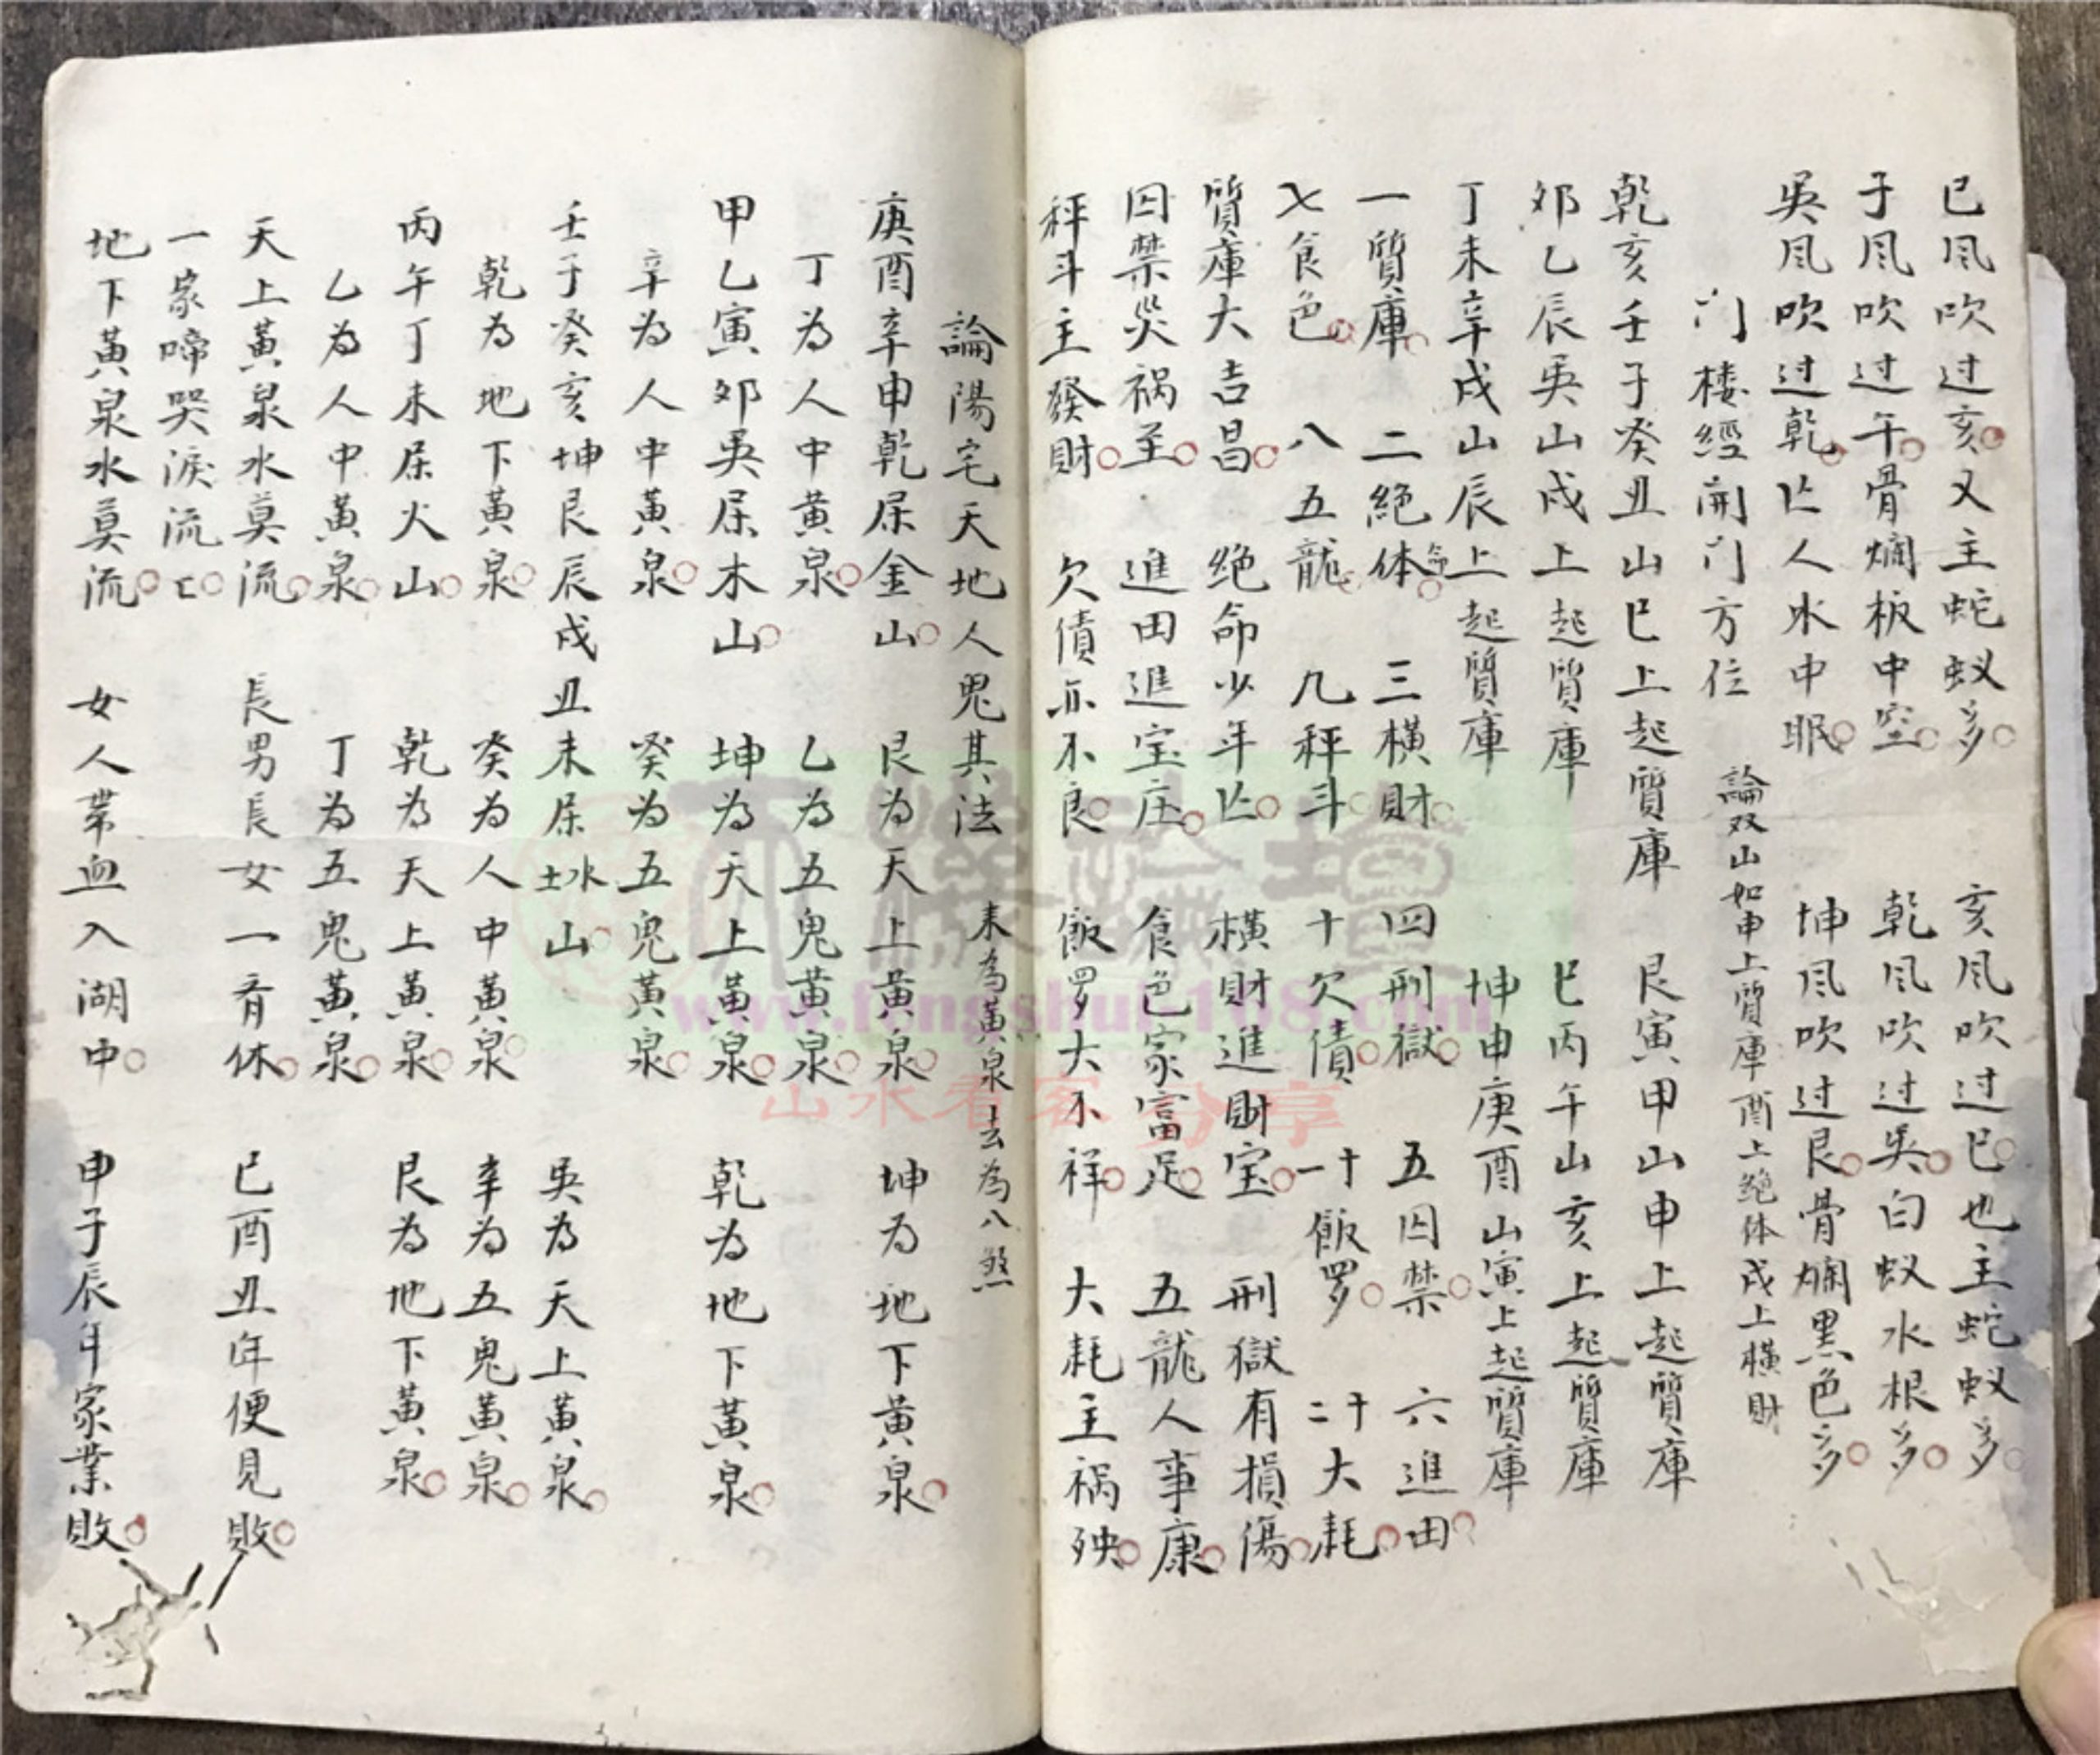 巳風吹过亥又主蛇蚁多 亥風吹过巳也主蛇蚁多
子風吹过午骨爛板中空 乾風吹过巽白蚁水根多
巽風吹过乾亾人水中眠 坤風吹过艮骨爛黑色多
门楼經開门方位 論双山如申上質庫酉上絕体戌上橫財
乾亥壬子癸丑山巳上起質庫 艮寅甲山申上起質庫
卯乙辰巽山戌上起質庫 巳丙午山亥上起質庫
丁未辛戌山辰上起質庫 坤申庚酉山寅上起質庫
一質庫 二絕体命 三橫財 四刑獄 五囚禁 六進田
七食色 八五龍 九秤斗 十欠債 十一飯罗 十二大耗
質庫大吉昌 绝命少年亾 橫財進財宝 刑獄有損傷
囚禁災祸至 進田進宝庄 食色家富足 五龍人事康
秤斗主發財 欠債亦不良 飯罗大不祥 大耗主祸殃
論陽宅天地人鬼其法 来為黃泉去為八煞
庚酉辛申乾屬金山 艮為天上黃泉 坤為地下黃泉
丁為人中黃泉 乙為五鬼黃泉
甲乙寅卯巽屬木山 坤為天上黃泉 乾為地下黃泉
辛為人中黃泉 癸為五鬼黃泉
壬子癸亥坤艮辰戌丑未屬水土山 巽為天上黃泉
乾為地下黃泉 癸為人中黃泉 辛為五鬼黃泉
丙午丁未屬火山 乾為天上黃泉 艮為地下黃泉
乙為人中黃泉 丁為五鬼黃泉
天上黃泉水莫流 長男長女一齐休 巳酉丑年便見敗
一家啼哭淚流匕
地下黃泉水莫流 女人帯血入湖中 申子辰年家業敗
www.fengshui-168.com
山水看客 分享